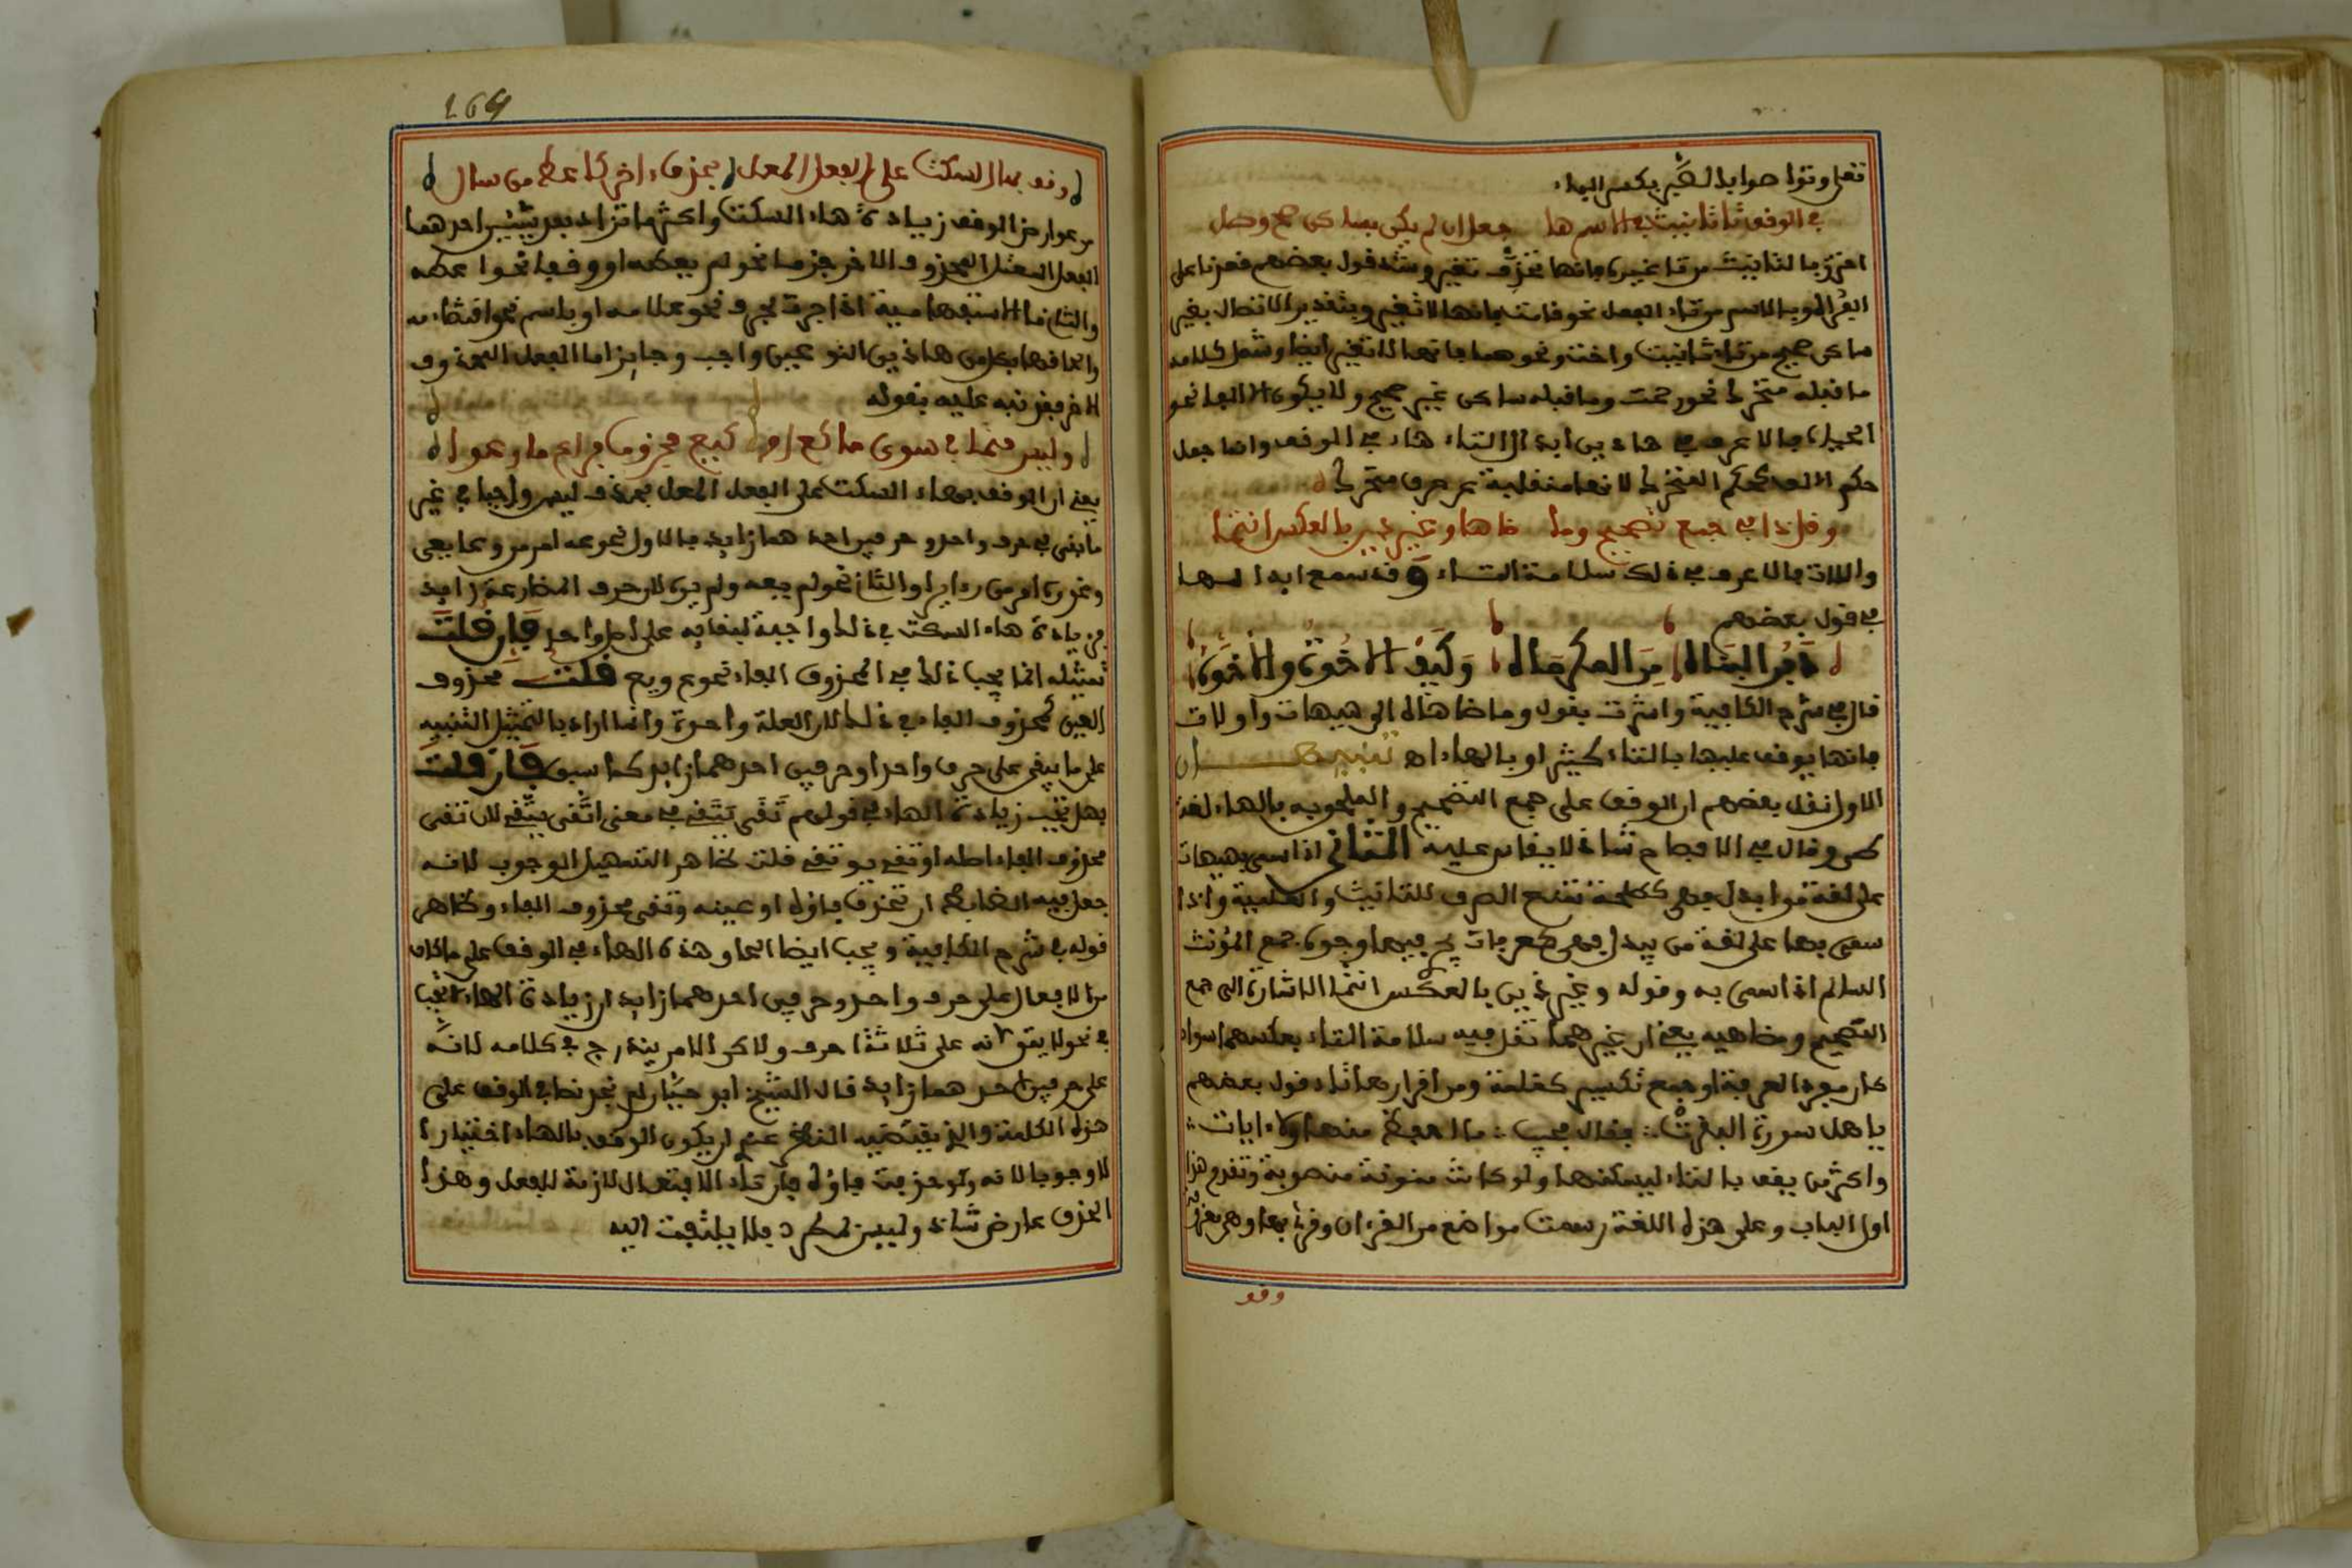 تقى وتوا صوابه الطير بكسر الياء
في الوقف تا تانيث الاسم ها جعل ان لم يكن بساكن صح وصل
احترز بالتانيث من تاء غيره فانها لا تغير وشذ قول بعضهم قعدنا على
الفراه وبالاسم من تاء الفعل نحو قامت فانها لا تغير وبتقدير الاتصال بغير
ساكن صحيح من تاء تانيث واخت ونحوهما فانها لا تغير ايضا وشمل كلامه
ما قبله متحرك نحو رحمت وما قبله ساكن غير صحيح ولا يكون الا الفا نحو
الحياة فالاعرف في هاذين ابدال التاء هاء في الوقف وانما جعل
حكم الالف كحكم المتحرك لانها منقلبة عن حرف متحرك
وقل ذا في جمع تصحيح وما ضاها وغير ذين بالعكس انتما
واللات فالاعرف في ذلك سلامة التاء وقد سمع ابدالها
في قول بعضهم
دفن البناه من المكرماه وكيف الاخوة والاخواه
قال في شرح الكافية واشرت بقولي وما ضاهاه الى هيهات واولات
فانها يوقف عليها بالتاء كثيرا وبالهاء اه تنبيهان
الاول نقل بعضهم ان الوقف على جمع التصحيح والملحق به بالهاء لغة
طي وقال في الافصاح شاذ لا يقاس عليه الثاني اذا سمي بهيهات
على لغة من ابدل فهي كطلحة تمنع الصرف للتانيث والعلمية واذا
سمي بها على لغة من يبدل فهي كعرفات يجري فيها وجوه جمع المؤنث
السالم اذا سمي به وقوله وغير ذين بالعكس انتما الاشارة الى جمع
التصحيح ومضاهيه يعني ان غيرهما تقل فيه سلامة التاء بعكسهما سواء
كان مفردا كمعرفة او جمع تكسير كغلمة ومن اقرارها تاء قول بعضهم
يا هل سورة البقرت فقال مجيب ما احفظ منها ولا ايات
واكثر من يقف بالتاء ليسكنها ولو كانت منونة منصوبة وتقدم هذا
اول الباب وعلى هذه اللغة رسمت مواضع من القرءان وقرئ بها وهي نحو
وقف
169
وقف بها السكت على الفعل المعل بحذف ءاخر كاعط من سال
من عوارض الوقف زيادة هاء السكت واكثر ما تزاد بعد شيئين احدهما
الفعل المعتل المحذوف الاخر جزما نحو لم يعطه او وقفا نحو اعطه
والثاني ما الاستفهامية اذا جرت بحرف نحو علامه او باسم نحو اقتضاء مه
والحاقها بكل من هاذين النوعين واجب وجايز اما الفعل المحذوف
الاخر فقد نبه عليه بقوله
وليس حتما في سوى ما كع او كيع مجزوما فراع ما رعوا
يعني ان الوقف بهاء السكت على الفعل المعل بحذف ليس واجبا في غير
ما بقي على حرف واحد او حرفين احدهما زايد فالاول نحو عه امر من وعا يعي
ونحو ره امر من راى يرى والثاني نحو لم يعه ولم يره لان حرف المضارعة زايد
فزيادة هاء السكت في ذلك واجبة لبقايه على اصل واحد فان قلت
تمثيله انما يجب ذلك في المحذوف الفاء نحو ع ويع قلت محذوف
العين كمحذوف الفاء في ذلك لان العلة واحدة وانما اراد بالتمثيل التنبيه
على ما يبقى على حرف واحد او حرفين احدهما زايد كما سبق فان قلت
فهل تجب زيادة الهاء في قولهم تقى يتقي في معنى اتقى يتقي لان تقى
محذوف الفاء اصله اوتقى يوتقي قلت ظاهر التسهيل الوجوب لانه
جعل فيه الضابط ان تحذف فاؤه او عينه وتقى محذوف الفاء وظاهر
قوله في شرح الكافية ويجب ايضا الحاق هذه الهاء في الوقف على ما كان
من الافعال على حرف واحد وحرفين احدهما زايد ان زيادة الهاء لا تجب
في نحو لا يتق لانه على ثلاثة احرف ولاكن الامر يندرج في كلامه لانه
على حرفين احدهما زايد قال الشيخ ابو حيان لم نجد نصا في الوقف على
هذه الكلمة والذي يقتضيه النظر عندي ان يكون الوقف بالهاء اختيارا
لا وجوبا لانه ولو حذفت فاؤه فان تاء الافتعال لازمة للفعل وهذا
الحذف عارض شاذ وليس بمطرد فلا يلتفت اليه